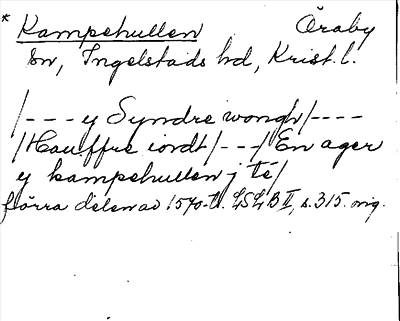 * Kampehullen Öraby
sn, Ingelstads hd, Krist. l.
/--- y Syndre wongh/----
/Hauffre iordt/---/En ager
y kampehullen j té/
förra delen av 1570-t. LSLB II, s. 315. orig.